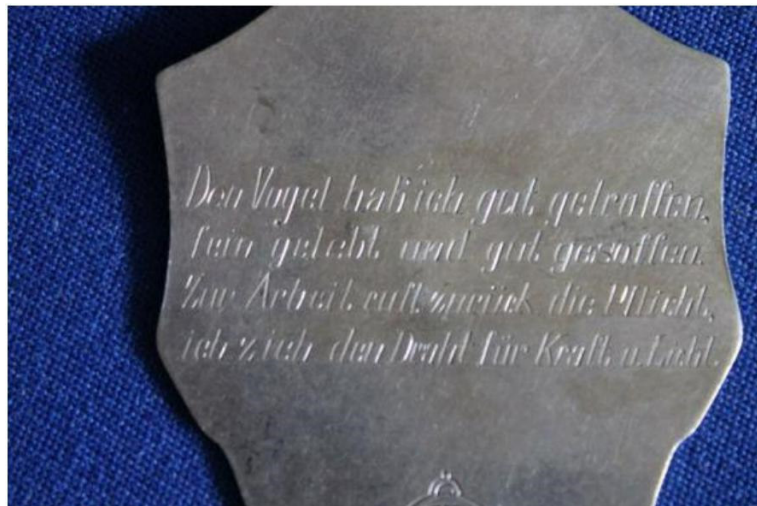 Den Vogel hab ich gut getroffen,
fein gelebt und gut gesoffen.
Zur Arbeit ruft zurück die Pflicht,
ich zieh den Draht für Kraft u. Licht.